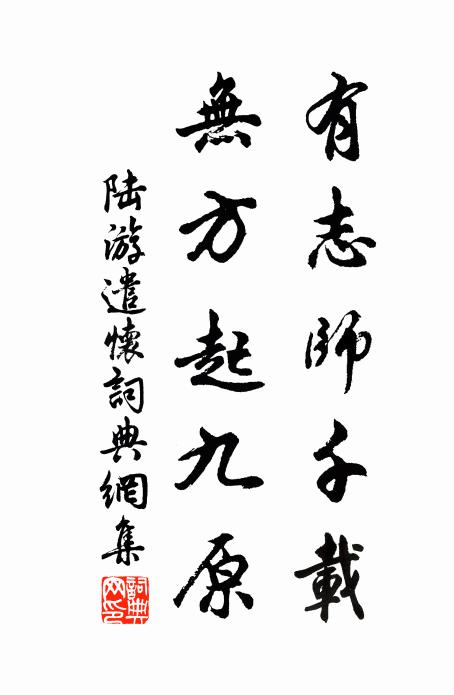 有志師千載
無方起九原
陸游遣懷詞典網集
詞典网印